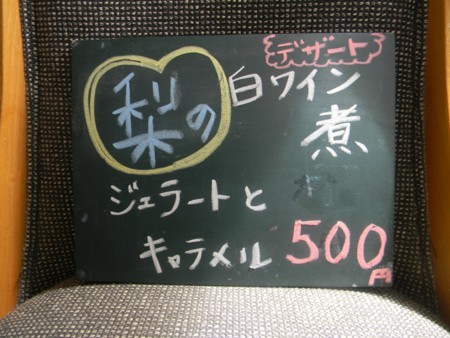 デザート
梨の白ワイン
煮
ジェラートと
キャラメル 500
円